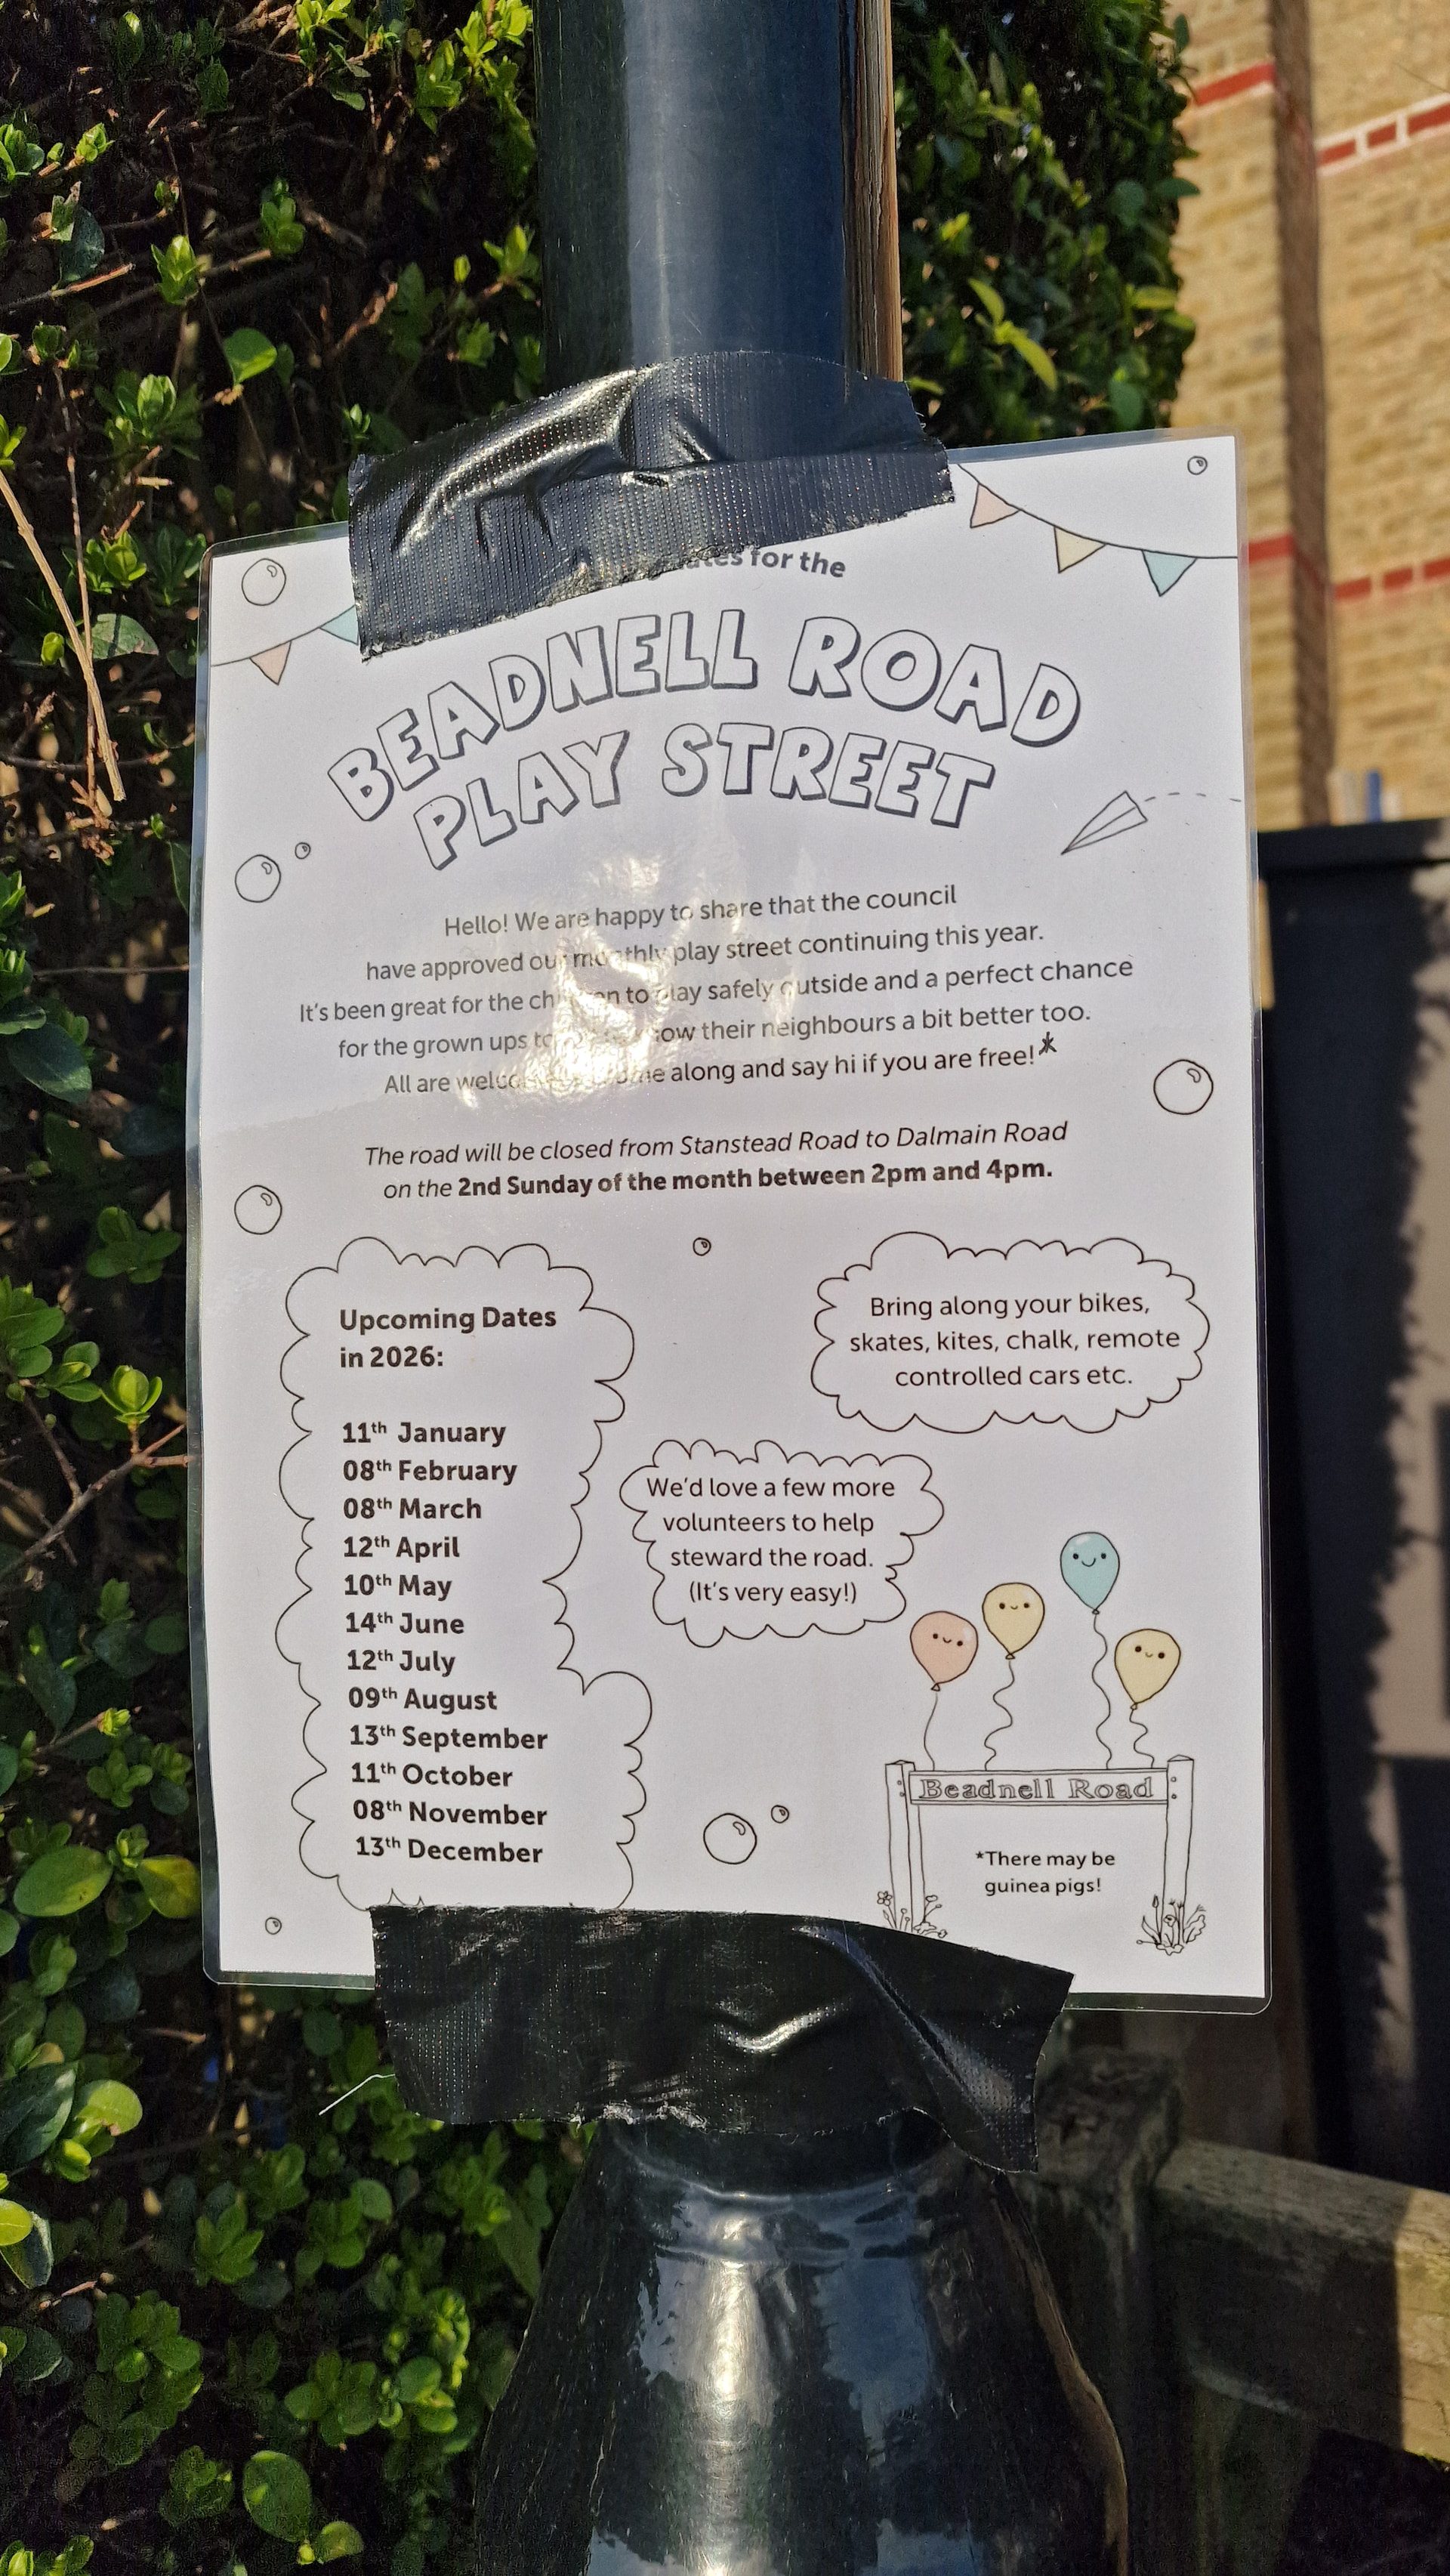 for the
BEADNELL ROAD
PLAY STREET
Hello! We are happy to share that the council
have approved our monthly play street continuing this year.
It's been great for the children to play safely outside and a perfect chance
for the grown ups to know their neighbours a bit better too.
All are welcome along and say hi if you are free!*
The road will be closed from Stanstead Road to Dalmain Road
on the 2nd Sunday of the month between 2pm and 4pm.
Upcoming Dates
in 2026:
11th January
08th February
08th March
12th April
10th May
14th June
12th July
09th August
13th September
11th October
08th November
13th December
Bring along your bikes,
skates, kites, chalk, remote
controlled cars etc.
We'd love a few more
volunteers to help
steward the road.
(It's very easy!)
Beadnell Road
*There may be
guinea pigs!